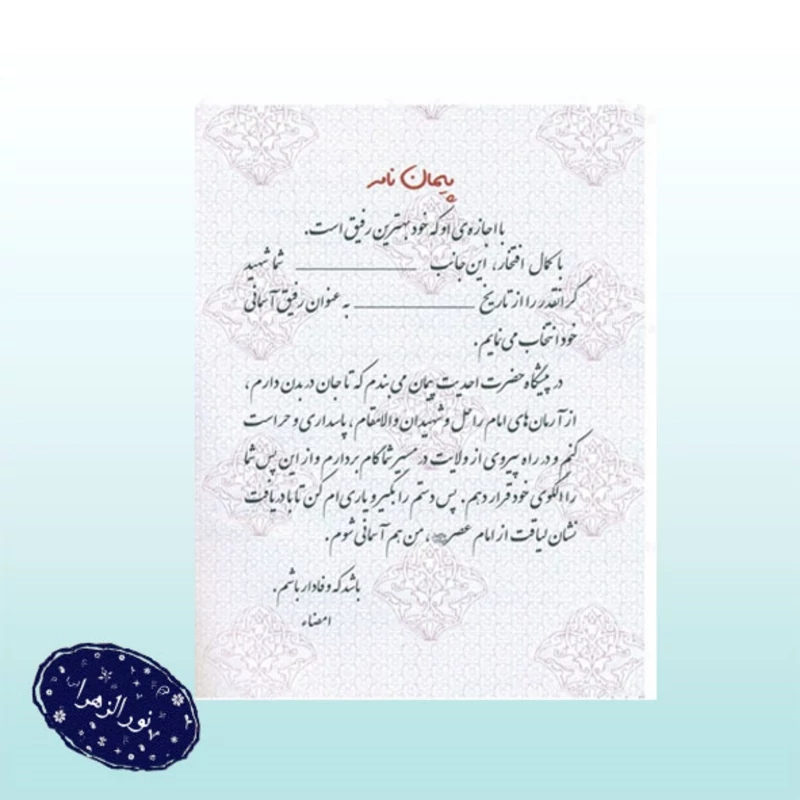 پیمان نامه
با اجازه‌ی او که خود بهترین رفیق است.
با کمال افتخار، این جانب ________ شما شهید
گرانقدر را از تاریخ ________ به عنوان رفیق آسمانی
خود انتخاب می نمایم.
در پیشگاه حضرت احدیت پیمان می بندم که تا جان در بدن دارم،
از آرمان های امام راحل و شهیدان والامقام، پاسداری و حراست
کنم و در راه پیروی از ولایت در مسیر شما گام بردارم و از این پس شما
را الگوی خود قرار دهم. پس دستم را بگیر و یاری ام کن تا با دریافت
نشان لیاقت از امام عصر، من هم آسمانی شوم.
باشد که وفادار باشم.
امضاء
نورالزهرا